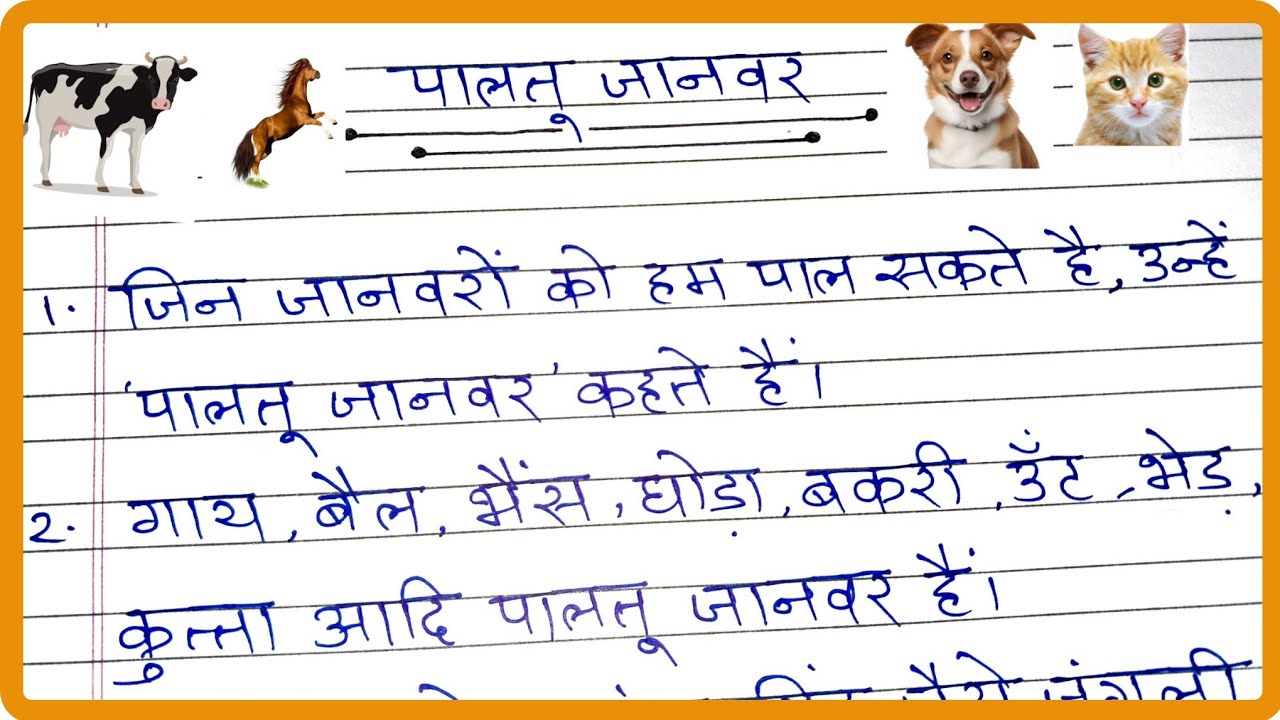 पालतू जानवर
1. जिन जानवरों को हम पाल सकते है, उन्हें
'पालतू जानवर' कहते हैं।
2. गाय, बैल, भैंस, घोड़ा, बकरी, उँट, भेड़,
कुत्ता आदि पालतू जानवर हैं।
जंगली